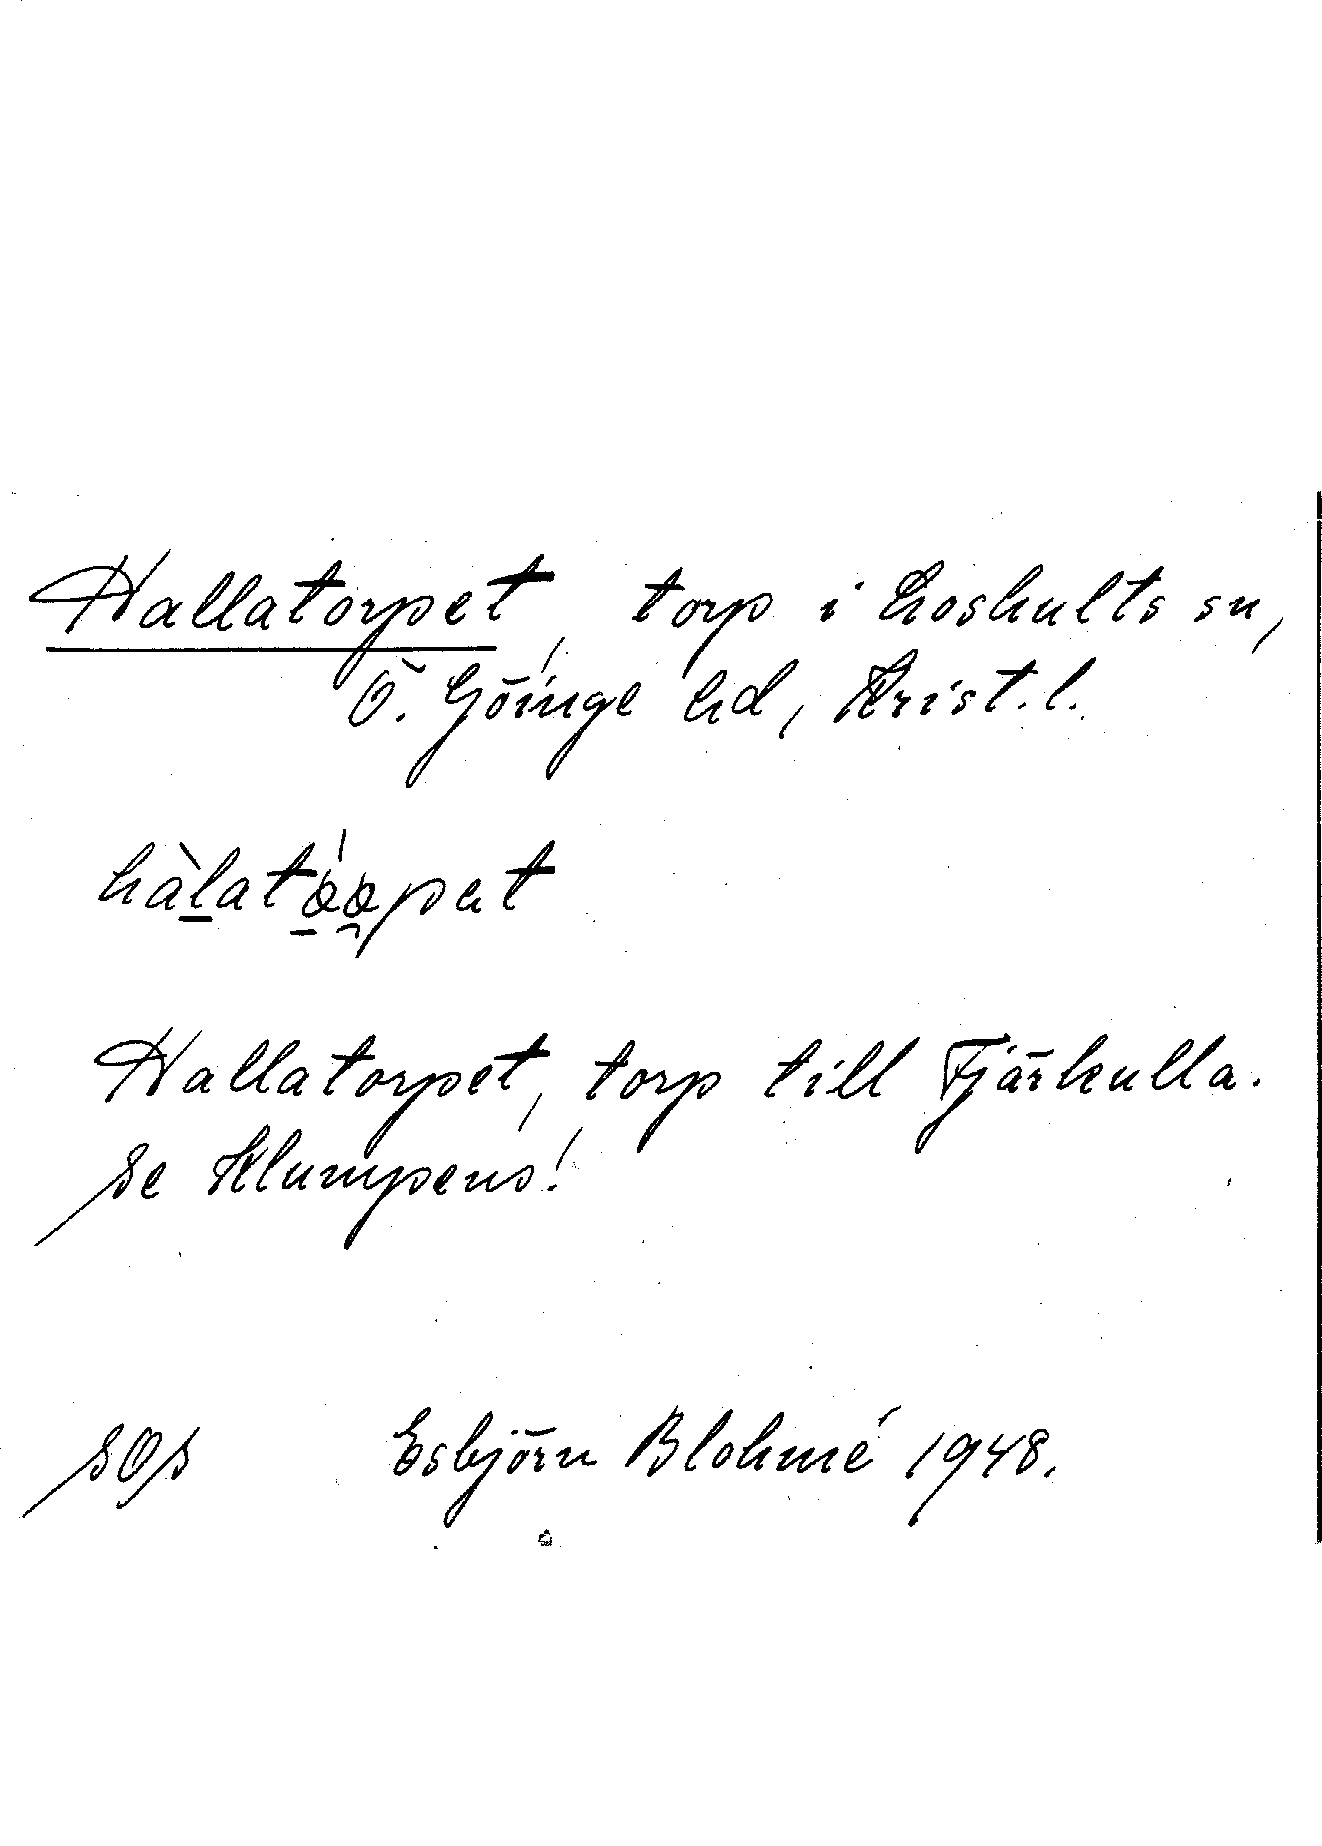 Hallatorpet, torp i Loshults sn,
Ö. Göinge hd, Krist. l.
Hallatorpet, torp till Fjärkulla.
Se Klumpens!
SOS Esbjörn Blohmé 1948.